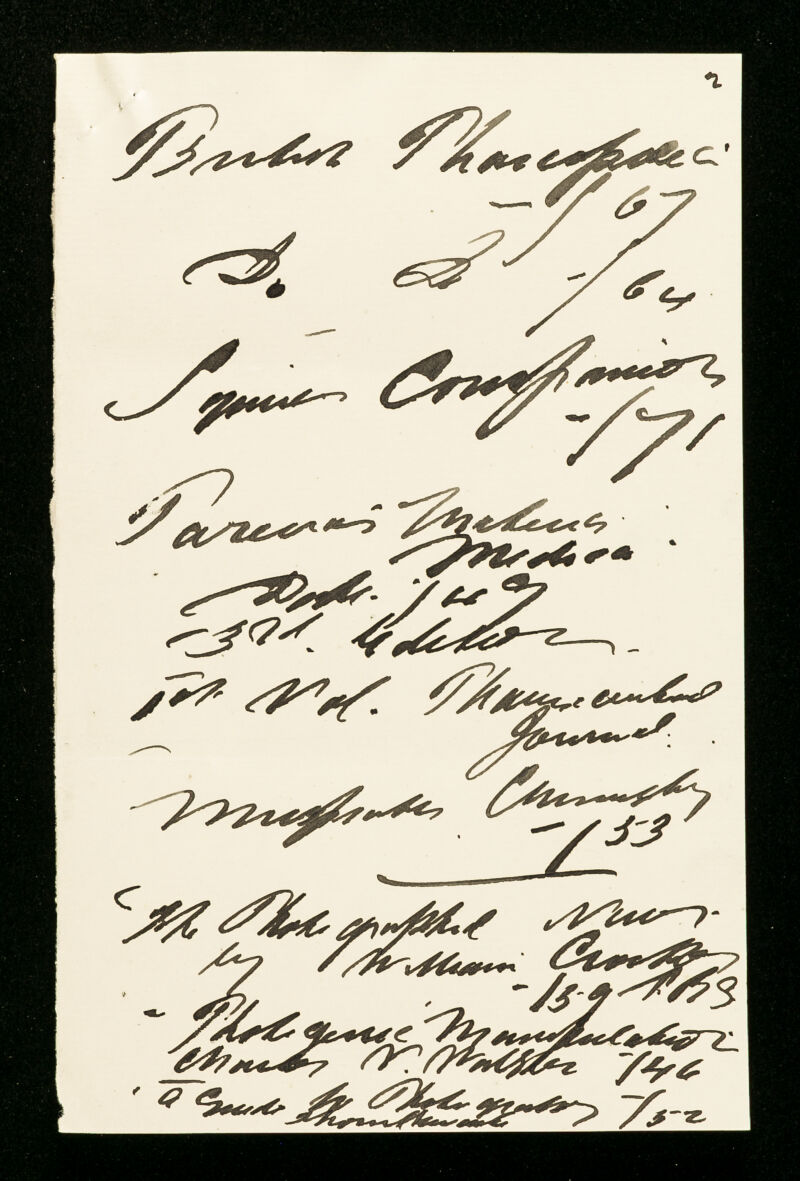 2
British Pharcopoeci
- / 67
Do Do - / 64
Squires Companion
- / 71
Pareiras Materia
Medica
Date. / 49
3rd. Edition
1st Vol. Pharmceutical
Journal.
Chemistry
- / 53
"The Photographical News
by William Crookes
- / 59
" Photogenic Manipulation
Charles V. Walker - / 46
" a Guide to Photography - / 52
Thornthwaite